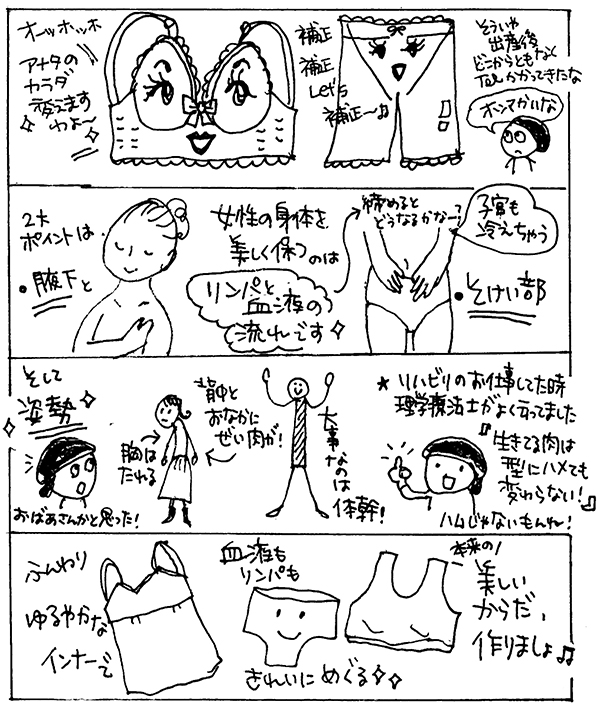 オーッホッホ
アナタの
カラダ
変えます
わよ〜
補正
補正
Let's
補正〜♫
そういや
出産後
どこからともなく
Telかかってきたな
ホンマかいな
2大
ポイントは
・腋下と
女性の身体を
美しく保つ
のは
リンパと
血液の
流れです
締めると
どうなるかなー?
子宮も
冷えちゃう
・そけい部
そして
姿勢
おばあさんかと思った!
胸は
たれる
背中と
おなかに
ぜい肉が!
大事なのは
体幹!
★リハビリのお仕事してた時
理学療法士がよく言ってました
『生きてる肉は
型にハメても
変わらない!』
ハムじゃないもんね!
ふんわり
ゆるやかな
インナーで
血液も
リンパも
きれいにめぐる
本来の
美しい
からだ、
作りましょ♫